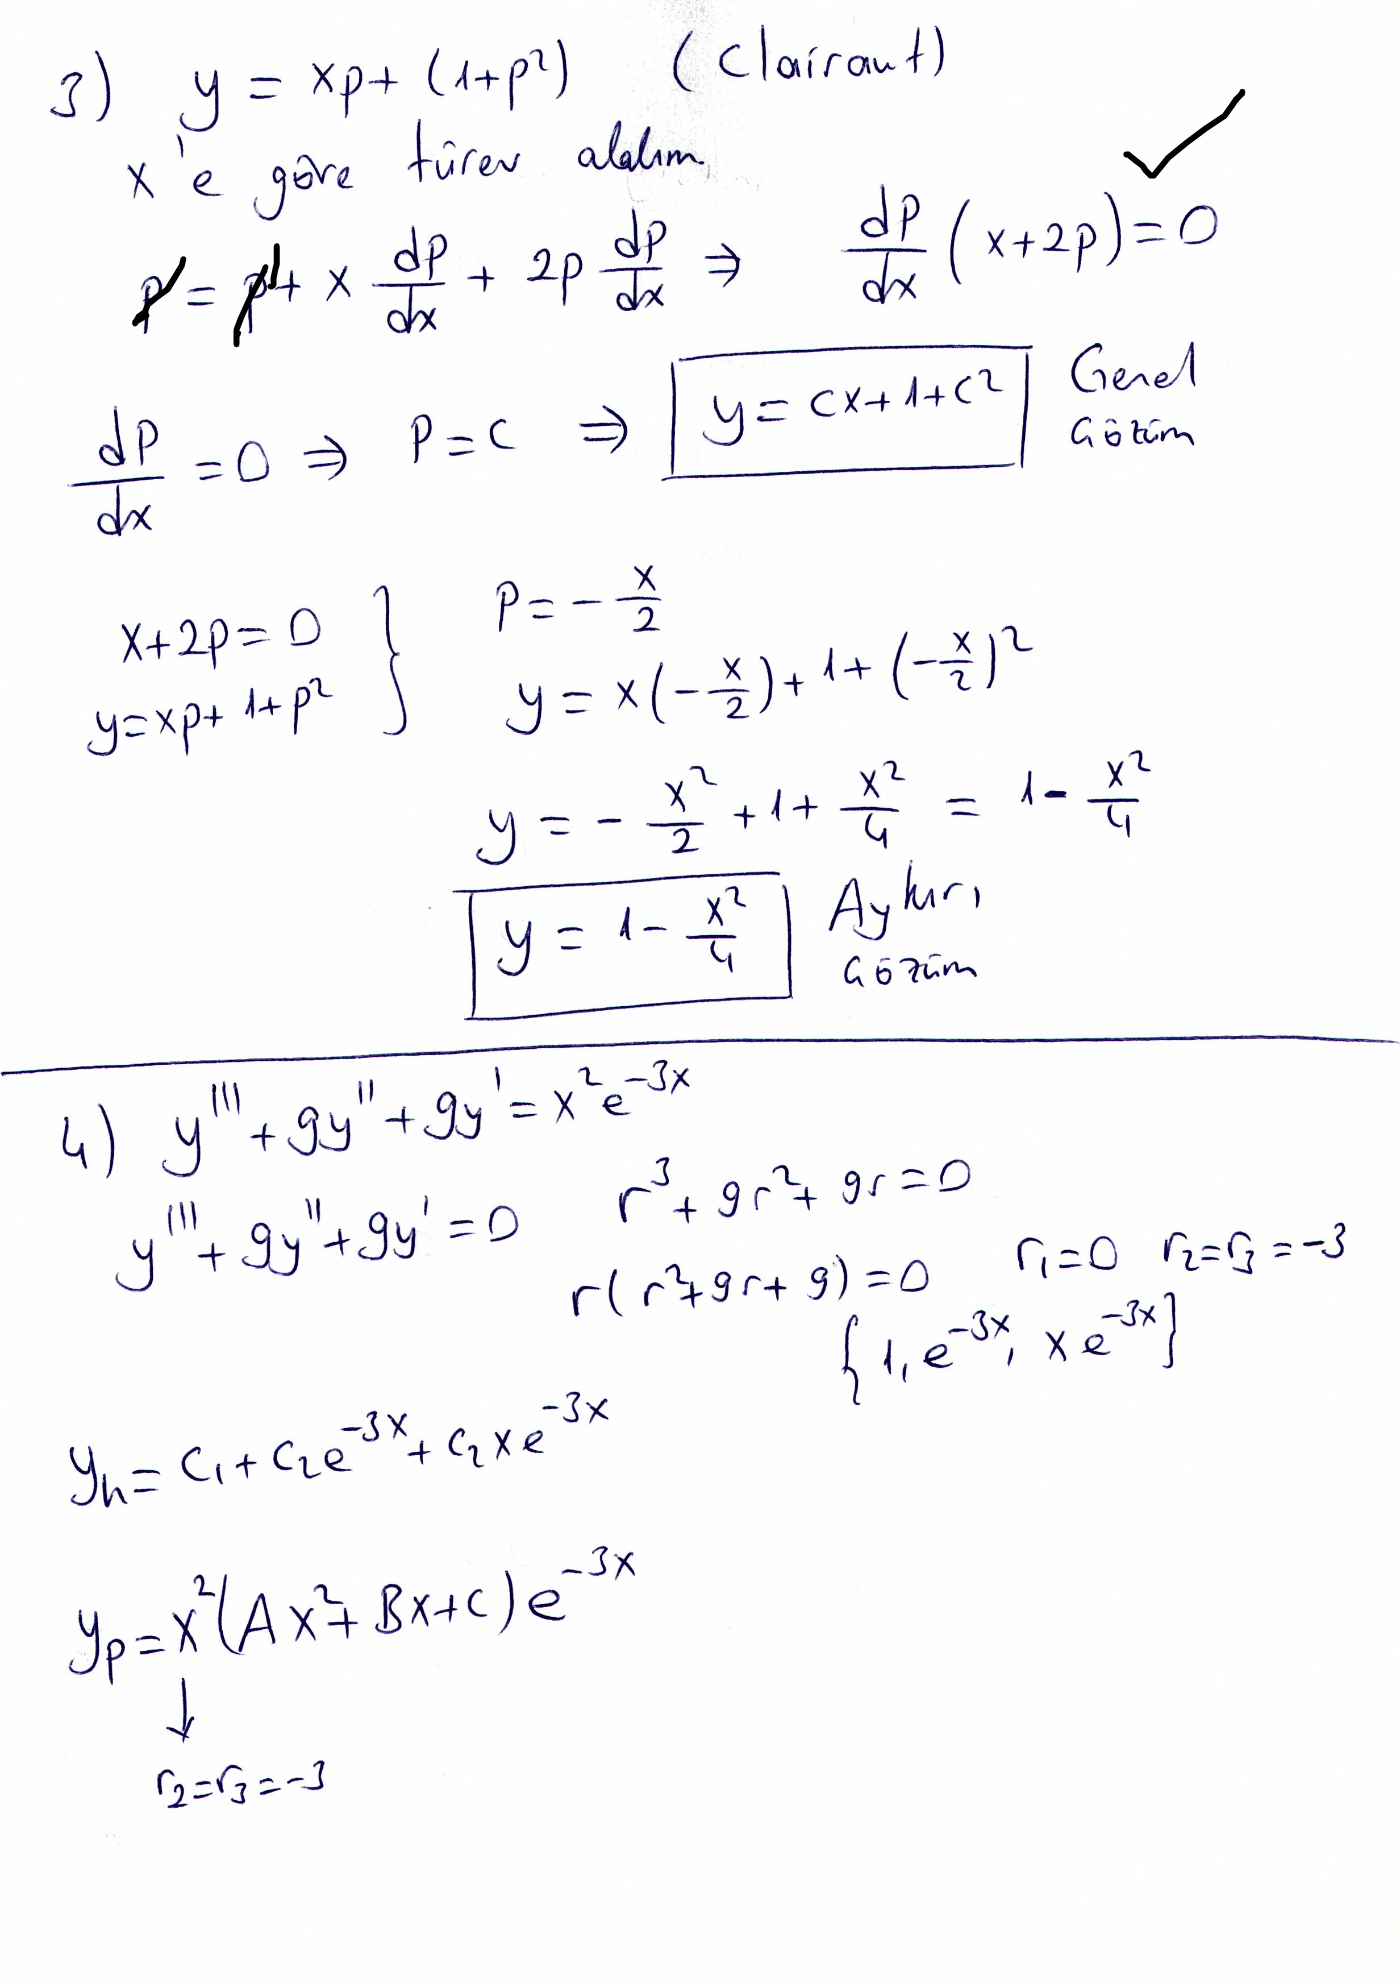 3) y = xp + (1+p²) (Clairaut)
x'e göre türev alalım
p = p + x dp/dx + 2p dp/dx ⇒ dp/dx (x+2p) = 0
dp/dx = 0 ⇒ p = c ⇒ y = cx+1+c² Genel Çözüm
x+2p = 0
y = xp + 1+p²
p = -x/2
y = x(-x/2) + 1 + (-x/2)²
y = -x²/2 + 1 + x²/4 = 1 - x²/4
y = 1 - x²/4 Aykırı Çözüm
4) y''' + 9y'' + 9y' = x²e^-3x
y''' + 9y'' + 9y' = 0 r³ + 9r² + 9r = 0
r(r²+9r+9) = 0 r₁=0 r₂=r₃=-3
{1, e^-3x, xe^-3x}
yh = c₁ + c₂e^-3x + c₂xe^-3x
yp = x²(Ax²+Bx+C)e^-3x
↓
r₂=r₃=-3